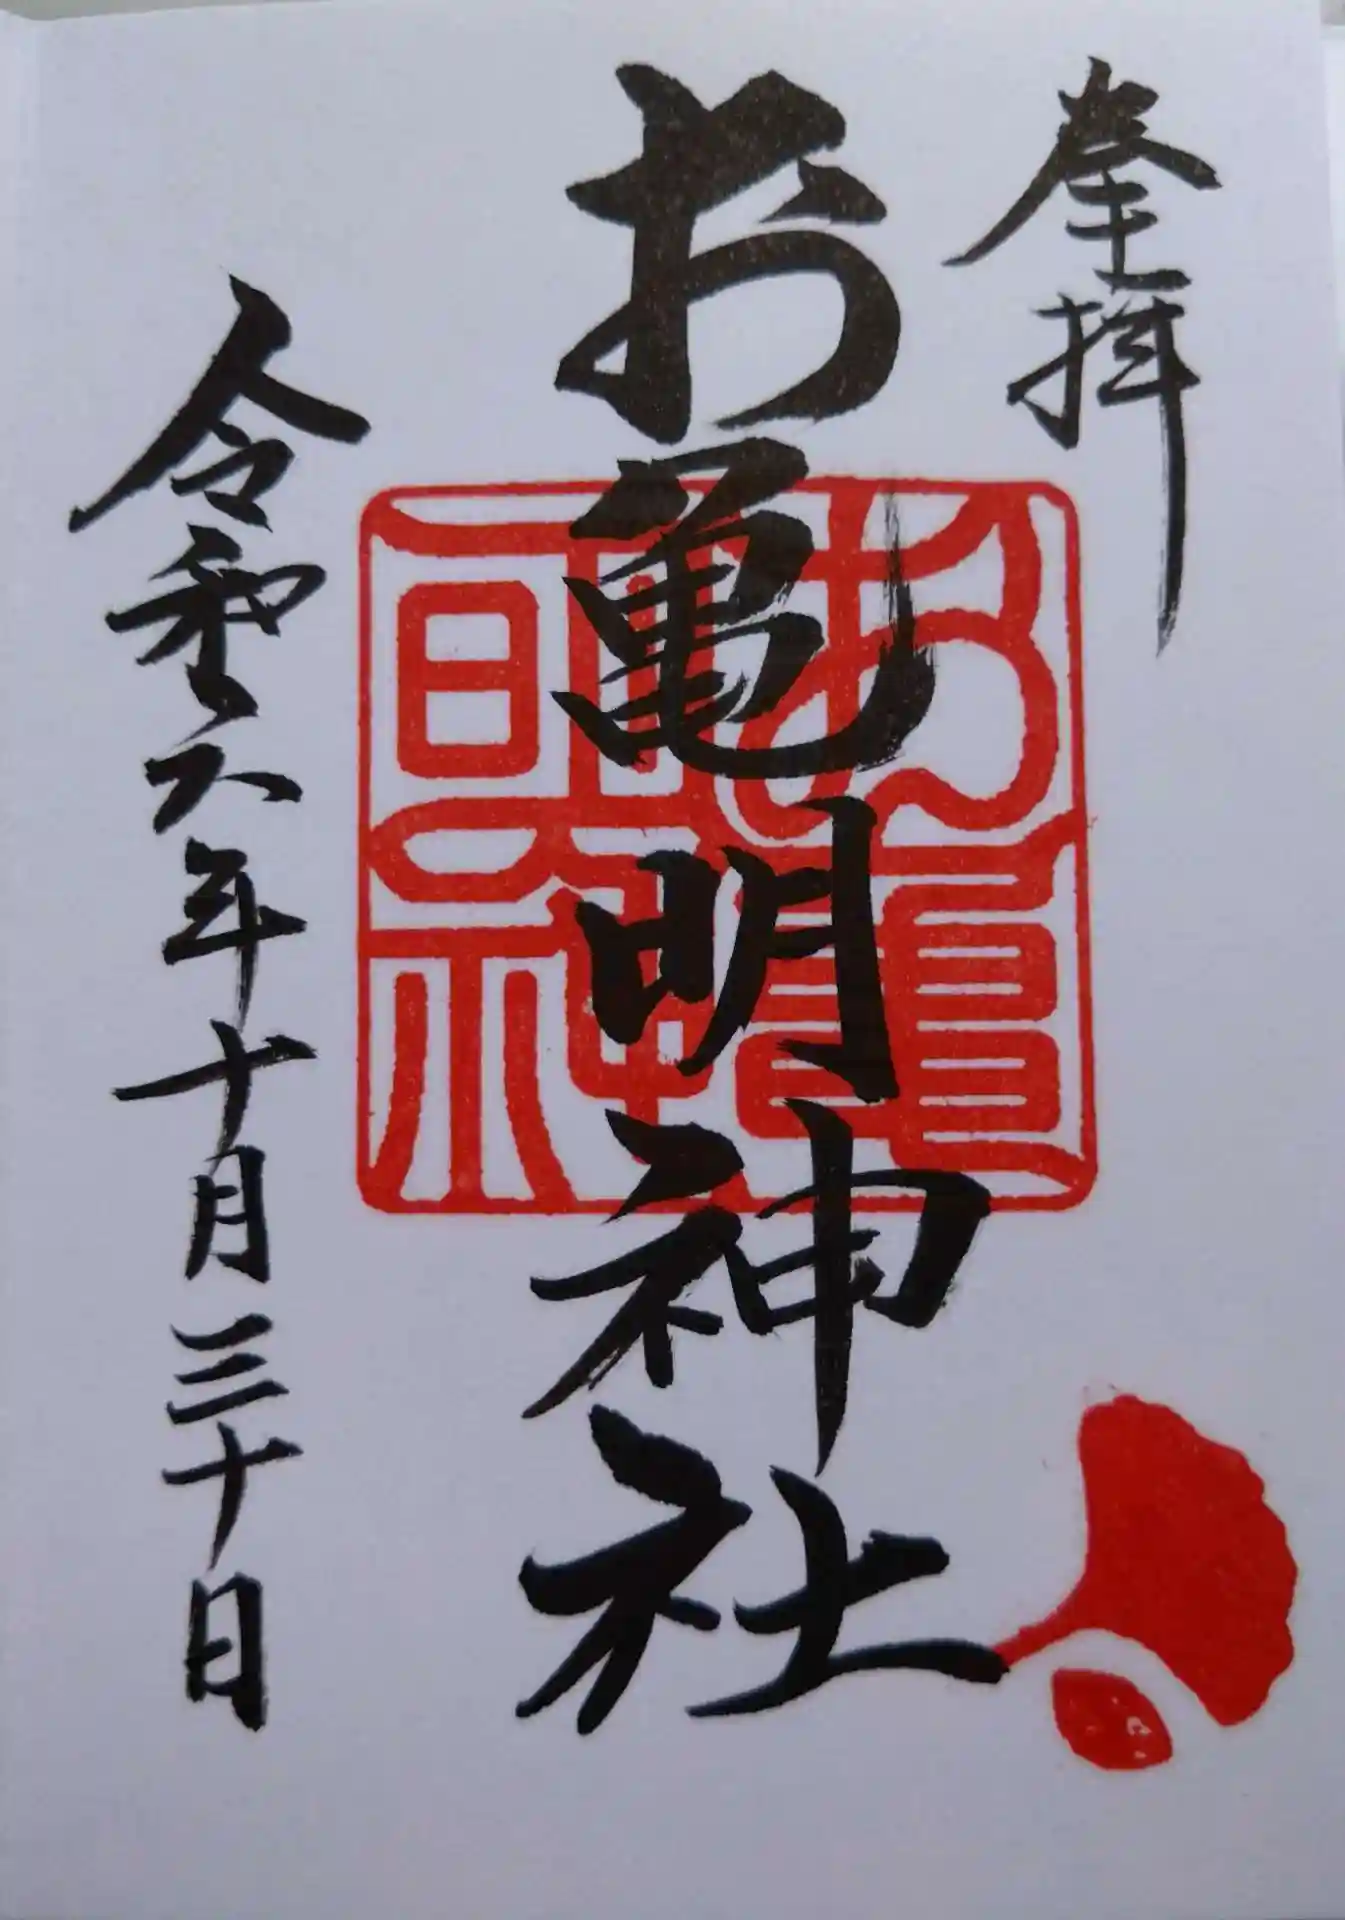 奉拝
お亀明神社
令和六年十月三十日
お亀
明神社